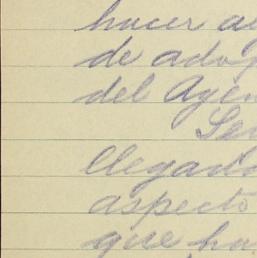 hacer a
de adop
del Agen
Se
llegado
aspecto
que ha